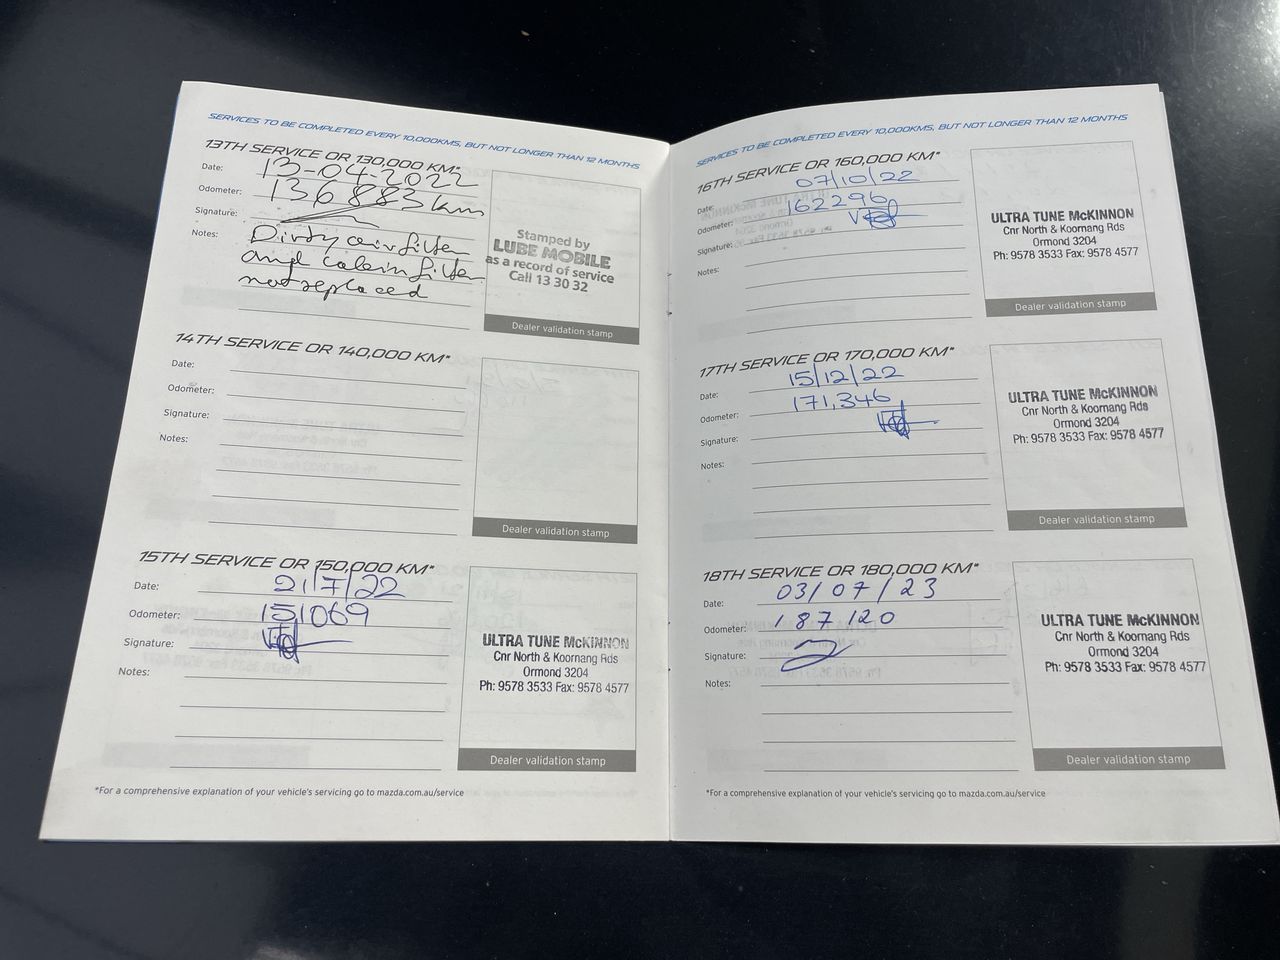 SERVICES TO BE COMPLETED EVERY 10,000KMS, BUT NOT LONGER THAN 12 MONTHS
13TH SERVICE OR 130,000 KM*
Date: 13-04-2022
Odometer: 136883 km
Signature:
Notes: Dirty air filter
and cabin filter
not replaced
Stamped by
LUBE MOBILE
as a record of service
Call 13 30 32
Dealer validation stamp
14TH SERVICE OR 140,000 KM*
Date:
Odometer:
Signature:
Notes:
Dealer validation stamp
15TH SERVICE OR 150,000 KM*
Date: 21/7/22
Odometer: 151069
Signature:
Notes:
ULTRA TUNE McKINNON
Cnr North & Koornang Rds
Ormond 3204
Ph: 9578 3533 Fax: 9578 4577
Dealer validation stamp
*For a comprehensive explanation of your vehicle's servicing go to mazda.com.au/service
SERVICES TO BE COMPLETED EVERY 10,000KMS, BUT NOT LONGER THAN 12 MONTHS
16TH SERVICE OR 160,000 KM*
Date: 07/10/22
Odometer: 162296
Signature:
Notes:
ULTRA TUNE McKINNON
Cnr North & Koornang Rds
Ormond 3204
Ph: 9578 3533 Fax: 9578 4577
Dealer validation stamp
17TH SERVICE OR 170,000 KM*
Date: 15/12/22
Odometer: 171,346
Signature:
Notes:
ULTRA TUNE McKINNON
Cnr North & Koornang Rds
Ormond 3204
Ph: 9578 3533 Fax: 9578 4577
Dealer validation stamp
18TH SERVICE OR 180,000 KM*
Date: 03/07/23
Odometer: 187120
Signature:
Notes:
ULTRA TUNE McKINNON
Cnr North & Koornang Rds
Ormond 3204
Ph: 9578 3533 Fax: 9578 4577
Dealer validation stamp
*For a comprehensive explanation of your vehicle's servicing go to mazda.com.au/service